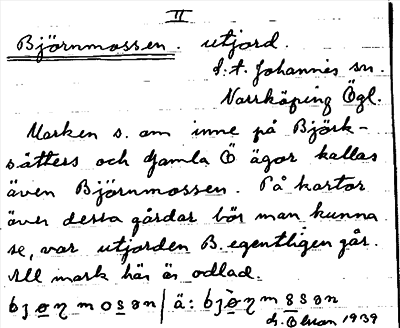 II
Björnmossen. utjord.
S:t Johannis sn.
Norrköping Ögl.
Marken s. om inne på Björk-
sätters och Gamla Ö ägor kallas
även Björnmossen. På kartor
över dessa gårdar bör man kunna
se, var utjorden B. egentligen går.
All mark här är odlad.
1939